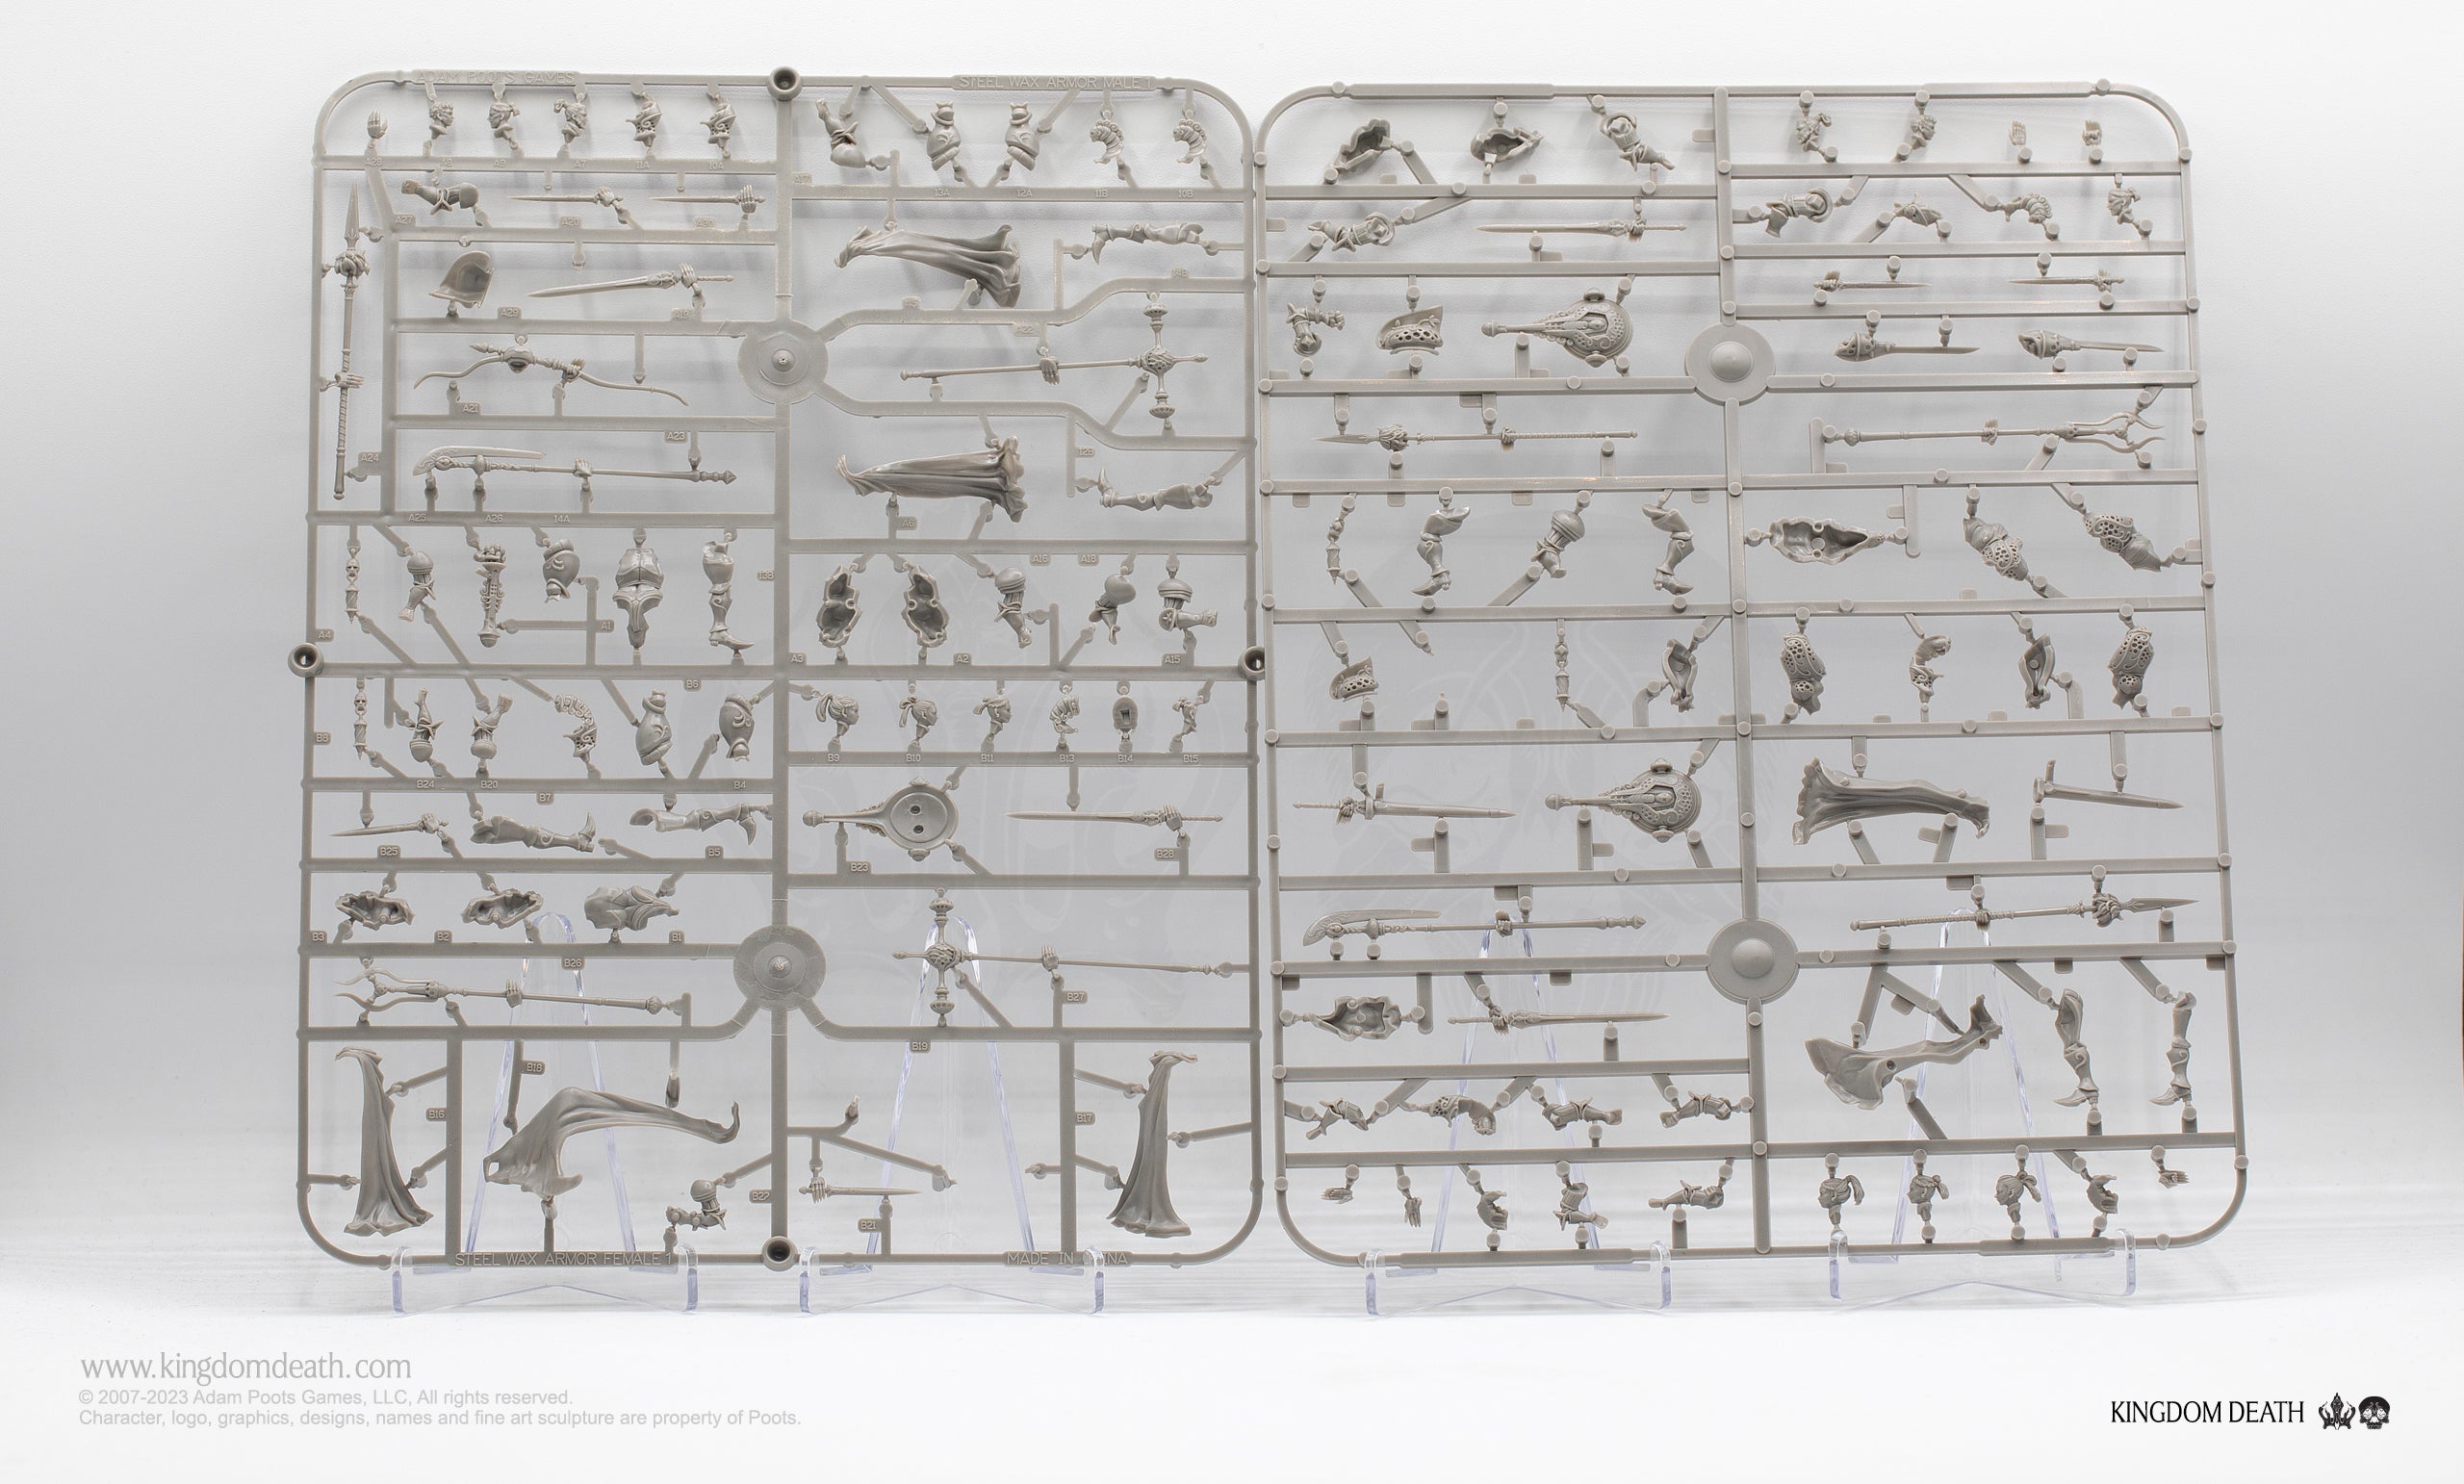 ADAM POOTS GAMES
STEEL WAX ARMOR MALE 1
A28 A8 A9 A7 11A 10A
A17 13A 12A 11B 10B
A27 A20
A29
14B
A22
A21
A23
A24
12B
A25 A26 14A
A6
A16 A18
13B
A4 A1
A3 A2 A15
B6
B8
B9 B10 B11 B13 B14 B15
B24 B20 B7 B4
B25 B5
B23 B28
B3 B2 B1
B26
B27
B19
B18
B16 B17
B22
B21
STEEL WAX ARMOR FEMALE 1
MADE IN
www.kingdomdeath.com
© 2007-2023 Adam Poots Games, LLC, All rights reserved.
Character, logo, graphics, designs, names and fine art sculpture are property of Poots.
KINGDOM DEATH